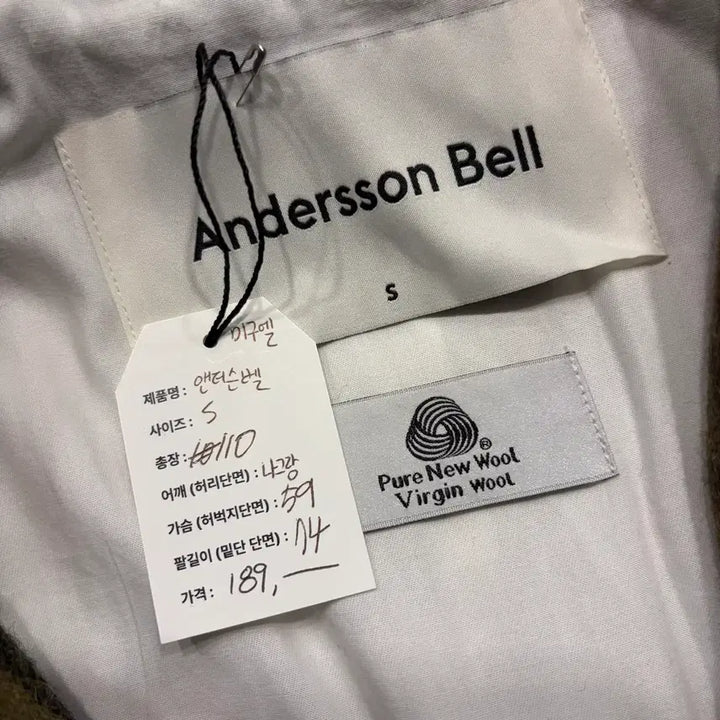 Andersson Bell
S
미구엘
제품명: 앤더슨벨
사이즈: S
총장: 110
어깨 (허리단면): 나그랑
가슴 (허벅지단면): 59
팔길이 (밑단 단면): 74
가격: 189,—
Pure New Wool
Virgin Wool